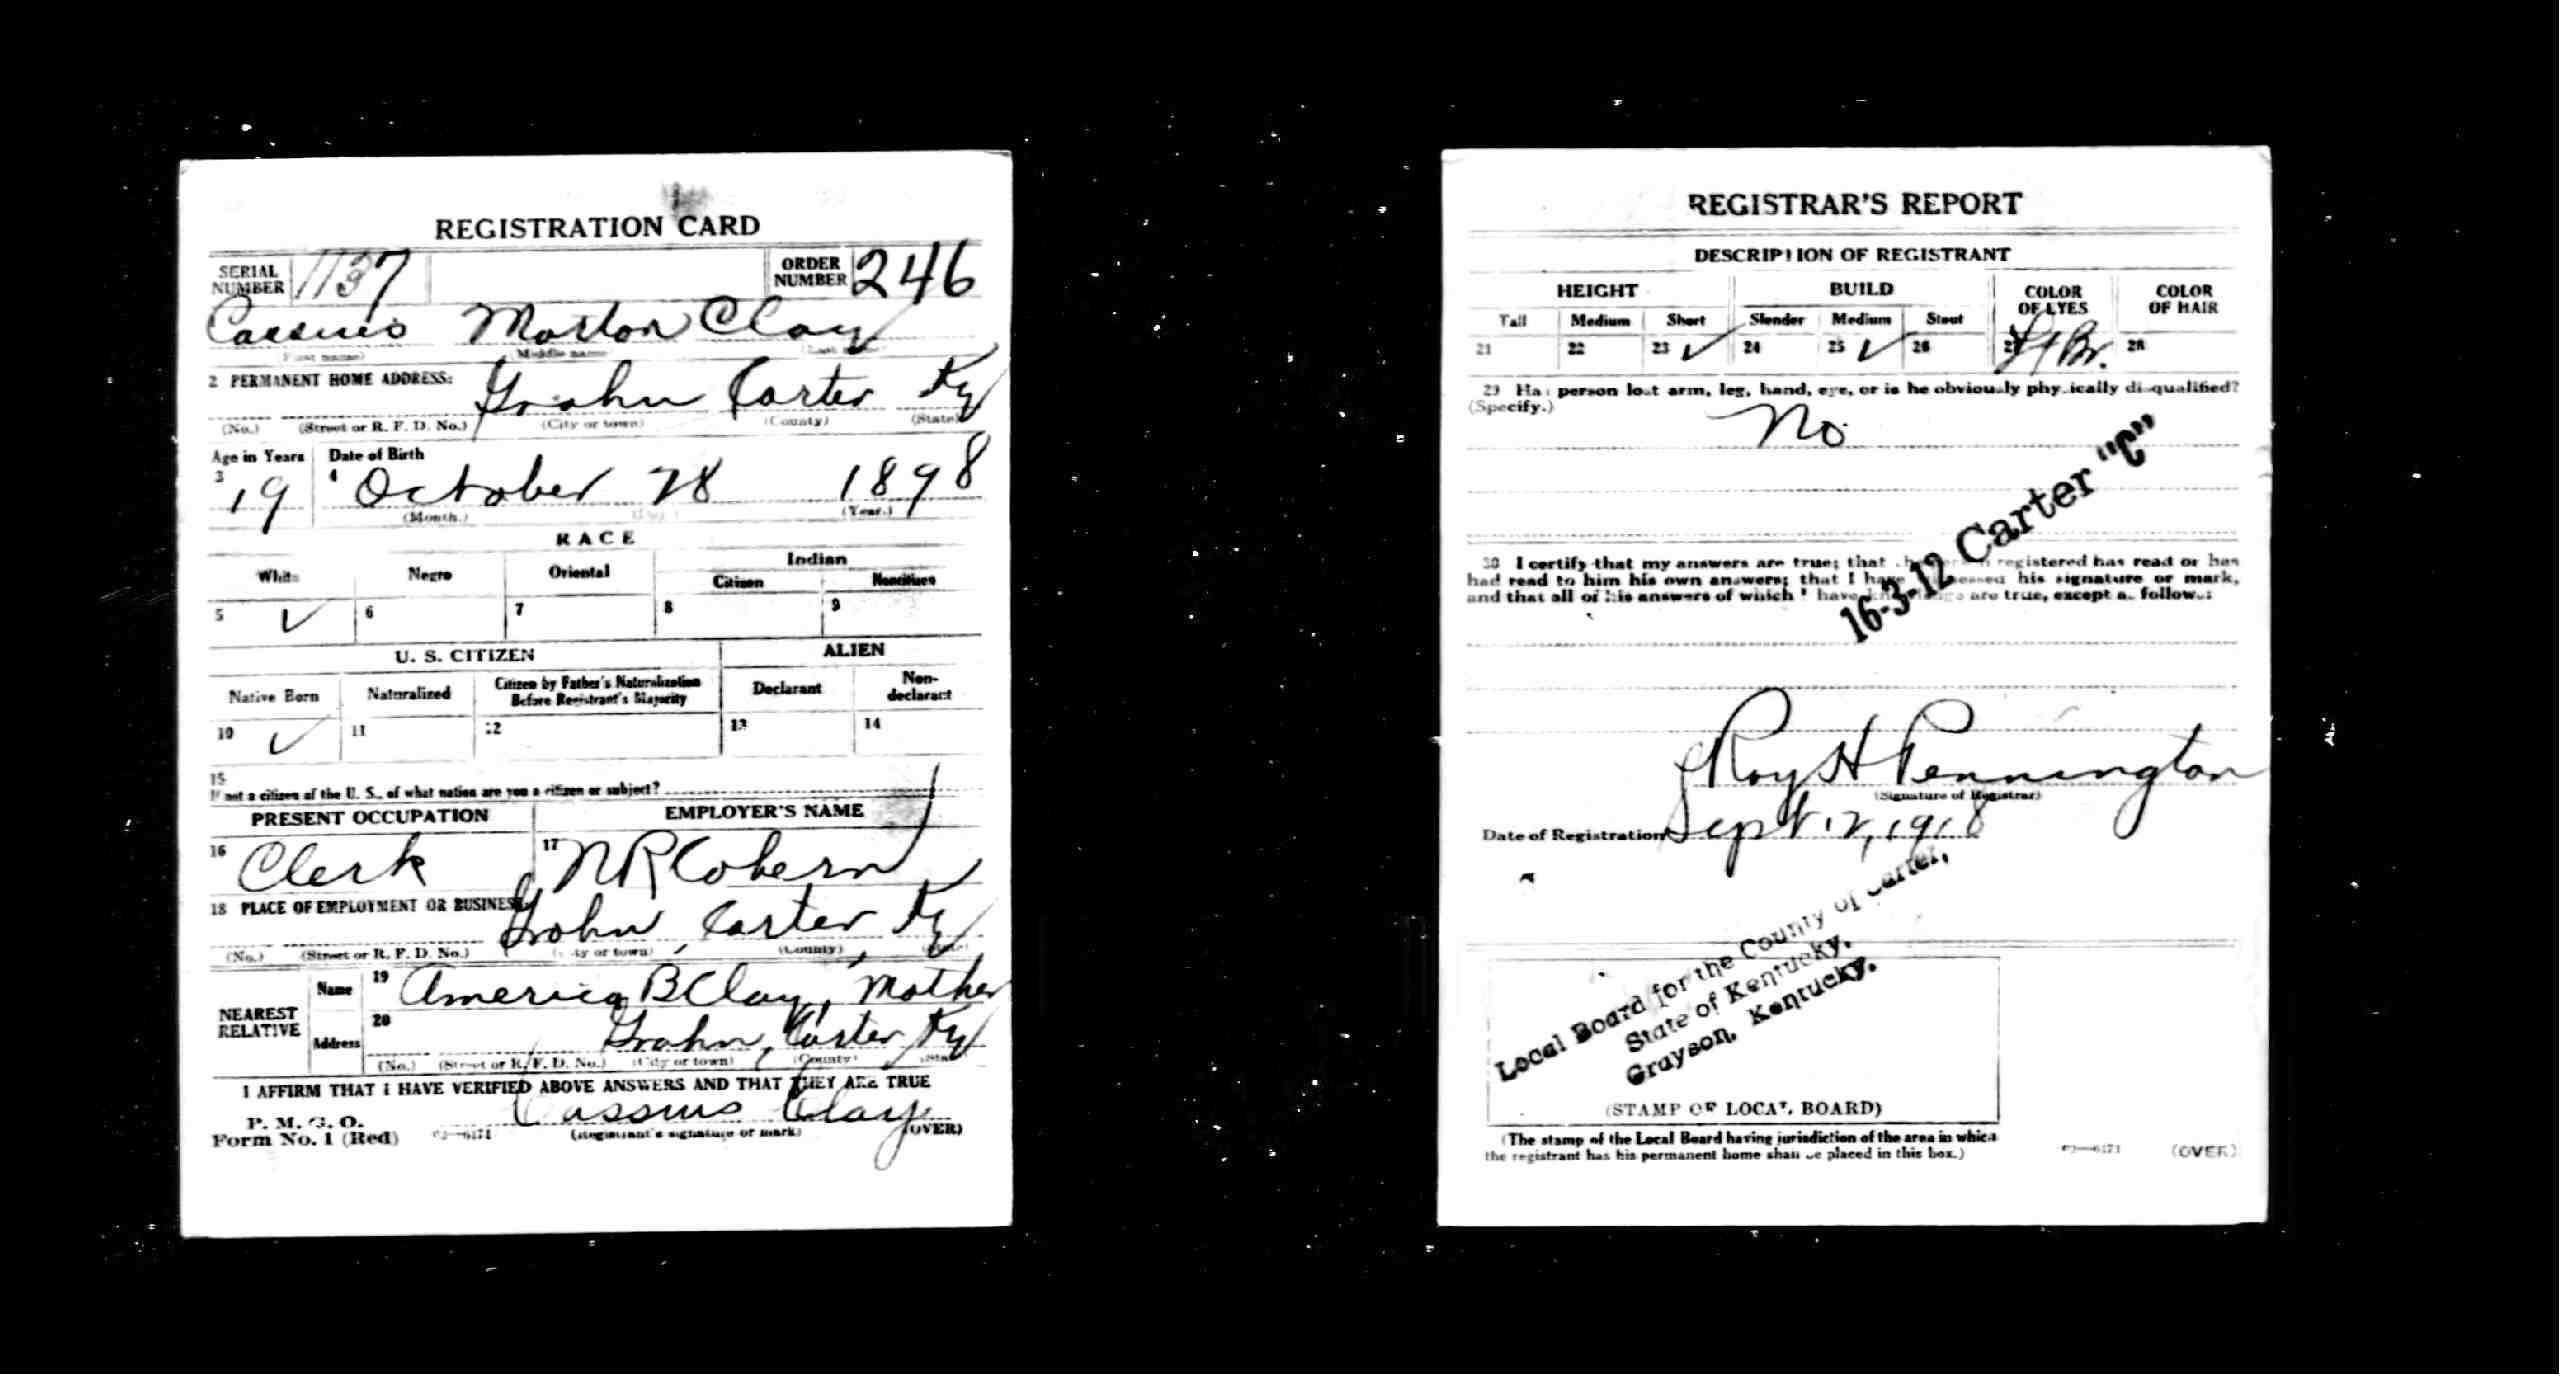 REGISTRATION CARD
SERIAL NUMBER 1137 ORDER NUMBER 246
Cassius Morton Clay
(First name) (Middle name) (Last name)
2 PERMANENT HOME ADDRESS: Grahn Carter Ky
(No.) (Street or R. F. D. No.) (City or town) (County) (State)
Age in Years Date of Birth
3 19 4 October 28 1898
(Month.) (Day.) (Year.)
RACE
White Negro Oriental Indian
Citizen Noncitizen
5 ✓ 6 7 8 9
U. S. CITIZEN ALIEN
Native Born Naturalized Citizen by Father's Naturalization Before Registrant's Majority Declarant Non-declarant
10 ✓ 11 12 13 14
15
If not a citizen of the U. S., of what nation are you a citizen or subject?
PRESENT OCCUPATION EMPLOYER'S NAME
16 Clerk 17 N R Cohern
18 PLACE OF EMPLOYMENT OR BUSINESS Grahn, Carter, Ky
(No.) (Street or R. F. D. No.) (City or town) (County) (State)
NEAREST RELATIVE Name 19 America B Clay, Mother
Address 20 Grahn, Carter, Ky
(No.) (Street or R. F. D. No.) (City or town) (County) (State)
I AFFIRM THAT I HAVE VERIFIED ABOVE ANSWERS AND THAT THEY ARE TRUE
P. M. G. O.
Form No. 1 (Red) Cassius Clay
(Registrant's signature or mark) (OVER)
REGISTRAR'S REPORT
DESCRIPTION OF REGISTRANT
HEIGHT BUILD COLOR OF EYES COLOR OF HAIR
Tall Medium Short Slender Medium Stout
21 22 23 ✓ 24 25 ✓ 26 27 Lt Br. 28
29 Has person lost arm, leg, hand, eye, or is he obviously physically disqualified?
(Specify.) No
16-3-12 Carter "C"
30 I certify that my answers are true; that the person registered has read or has
had read to him his own answers; that I have witnessed his signature or mark,
and that all of his answers of which I have knowledge are true, except as follows:
Roy H Pennington
(Signature of Registrar)
Date of Registration Sept. 12, 1918
Local Board for the County of Carter,
State of Kentucky,
Grayson, Kentucky.
(STAMP OF LOCAL BOARD)
(The stamp of the Local Board having jurisdiction of the area in which
the registrant has his permanent home shall be placed in this box.)
(OVER)